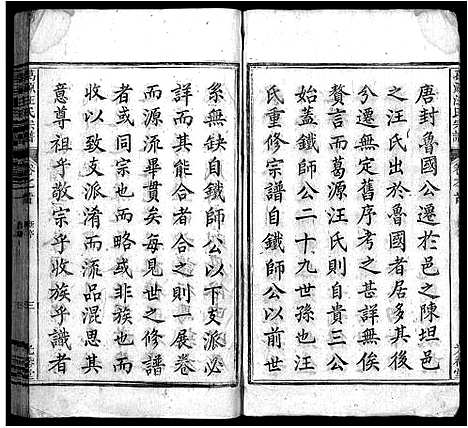 唐封魯國公遷於邑之陳坦邑
之汪氏出於魯國者居多其後
分遷無定舊序考之甚詳無俟
贅言而葛源汪氏則自貴三公
始蓋鐵師公二十九世孫也汪
氏重修宗譜自鐵師公以前世
系無缺自鐵師公以下支派必
詳而具會而合之則一展卷
而源流畢貫矣每見世之修譜
者或同宗也而略或非族也而
收以致支派淆而流品混思其
意尊祖乎敬宗乎收族乎識者
葛源汪氏宗譜
卷之首